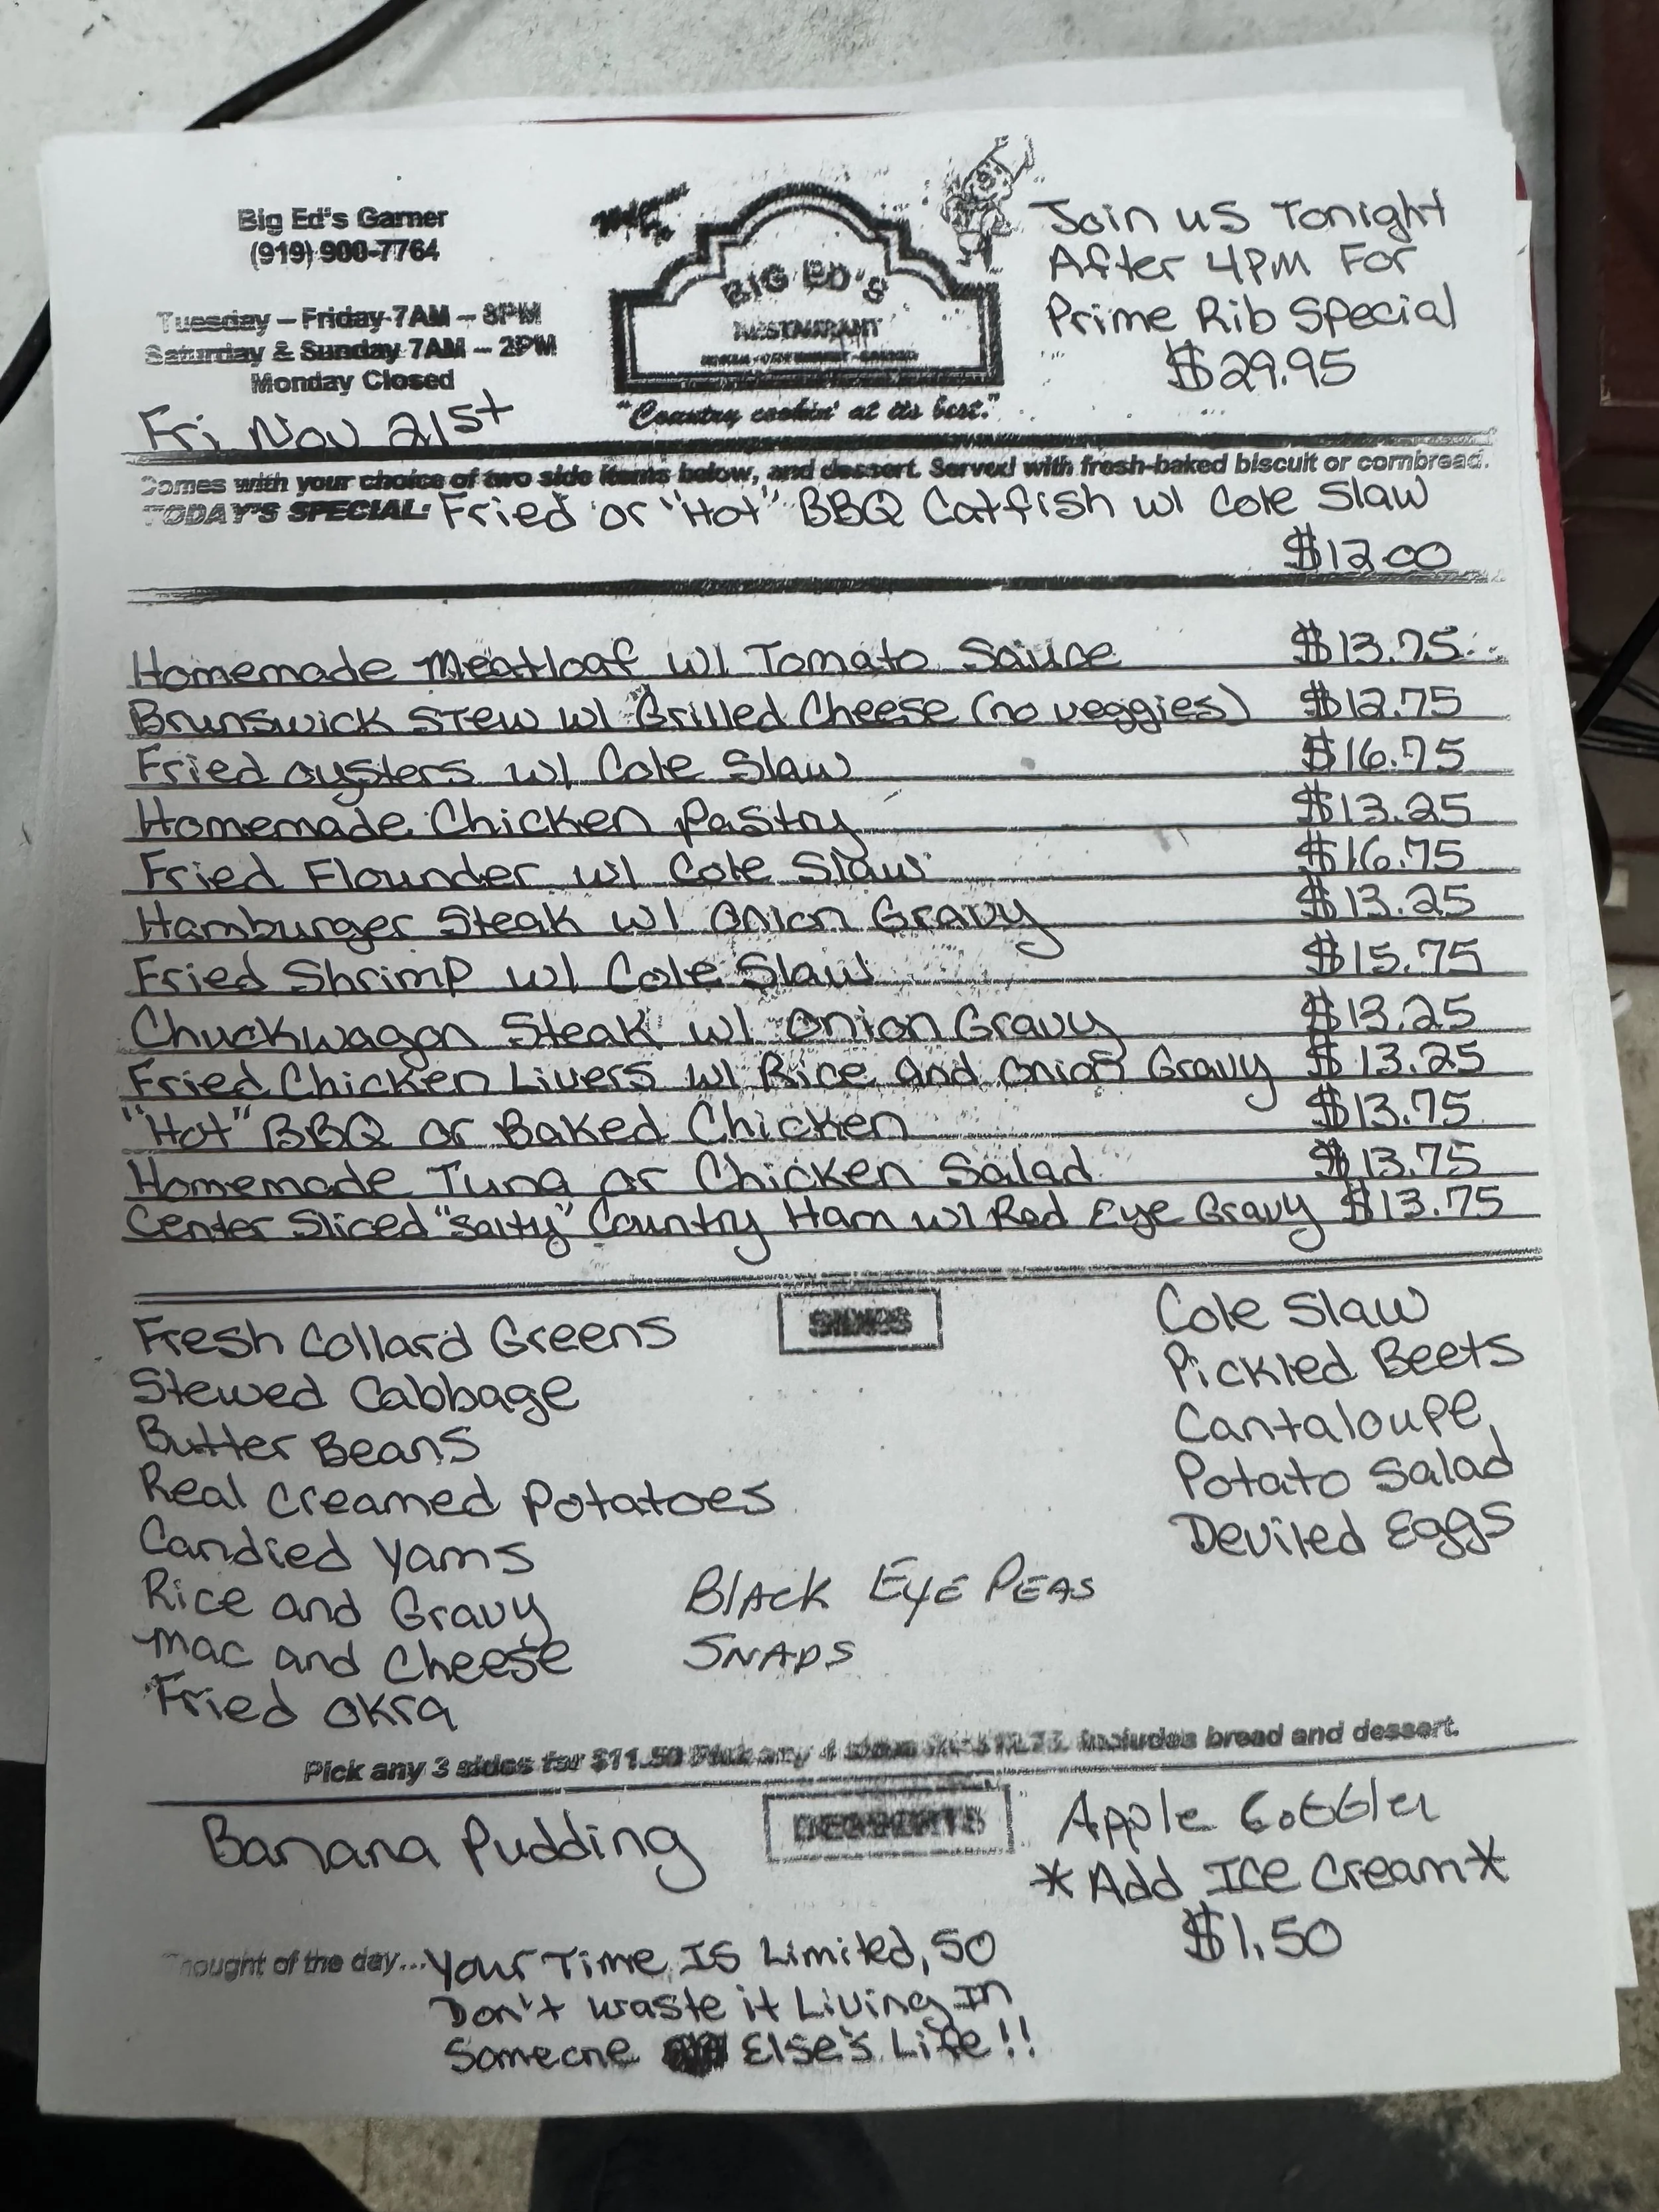 Big Ed's Garner
(919) 900-7764
Tuesday – Friday 7AM – 8PM
Saturday & Sunday 7AM – 2PM
Monday Closed
Fri Nov 21st
BIG ED'S
RESTAURANT
"Country cookin' at its best."
Join us Tonight
After 4PM For
Prime Rib Special
$29.95
Comes with your choice of two side items below, and dessert. Served with fresh-baked biscuit or cornbread.
TODAY'S SPECIAL: Fried or "Hot" BBQ Catfish w/ Cole Slaw
$12.00
Homemade Meatloaf w/ Tomato Sauce $13.75
Brunswick Stew w/ Grilled Cheese (no veggies) $12.75
Fried oysters w/ Cole Slaw $16.75
Homemade Chicken Pastry $13.25
Fried Flounder w/ Cole Slaw $16.75
Hamburger Steak w/ Onion Gravy $13.25
Fried Shrimp w/ Cole Slaw $15.75
Chuckwagon Steak w/ Onion Gravy $13.25
Fried Chicken Livers w/ Rice and Onion Gravy $13.25
"Hot" BBQ or Baked Chicken $13.75
Homemade Tuna or Chicken Salad $13.75
Center Sliced "Salty" Country Ham w/ Red Eye Gravy $13.75
SIDES
Fresh Collard Greens
Stewed Cabbage
Butter Beans
Real Creamed Potatoes
Candied Yams
Rice and Gravy
Mac and Cheese
Fried Okra
Black Eye Peas
Snaps
Cole Slaw
Pickled Beets
Cantaloupe
Potato Salad
Deviled Eggs
Pick any 3 sides for $11.50 Pick any 4 sides for Includes bread and dessert.
DESSERTS
Banana Pudding
Apple Cobbler
*Add Ice Cream*
$1.50
Thought of the day... Your Time Is Limited, So
Don't waste it Living In
Someone Else's Life!!